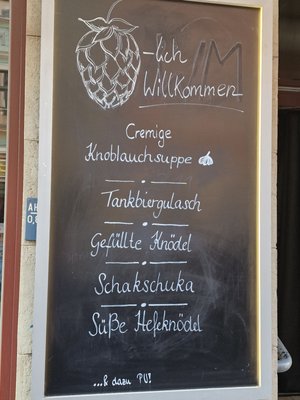 -lich
Willkommen
Cremige
Knoblauchsuppe
Tankbiergulasch
Gefüllte Knödel
Schakschuka
Süße Hefeknödel
...& dazu PU!